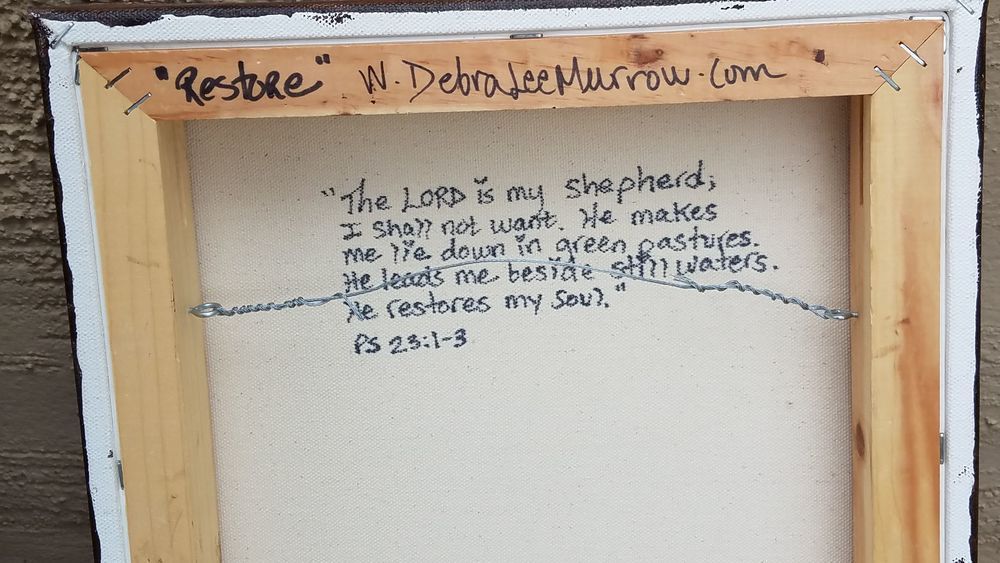 "Restore" W.DebraLeeMurrow.com
"The LORD is my shepherd;
I shall not want. He makes
me lie down in green pastures.
He leads me beside still waters.
He restores my soul."
PS 23:1-3